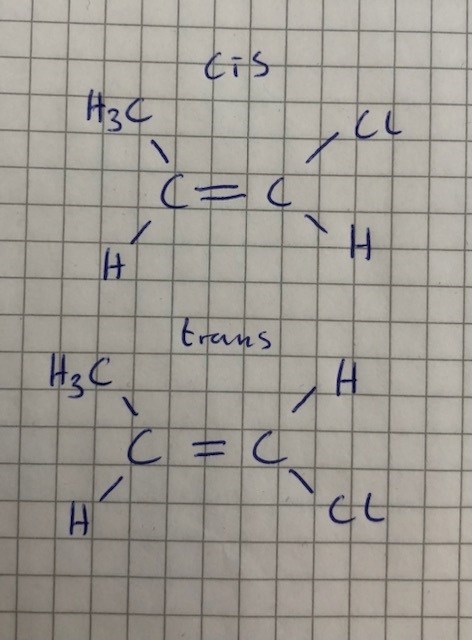 cis
H3C Cl
C = C
H H
trans
H3C H
C = C
H Cl